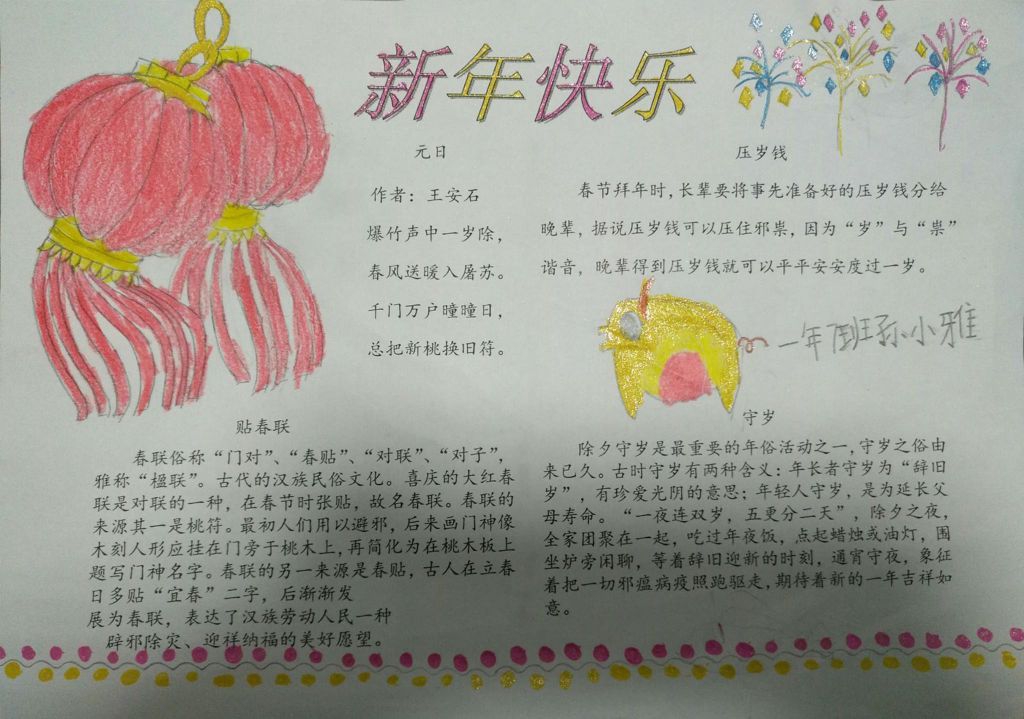 新年快乐
元日
作者：王安石
爆竹声中一岁除，
春风送暖入屠苏。
千门万户曈曈日，
总把新桃换旧符。
压岁钱
春节拜年时，长辈要将事先准备好的压岁钱分给
晚辈，据说压岁钱可以压住邪祟，因为“岁”与“祟”
谐音，晚辈得到压岁钱就可以平平安安度过一岁。
一年1班孙小雅
贴春联
春联俗称“门对”、“春贴”、“对联”、“对子”，
雅称“楹联”。古代的汉族民俗文化。喜庆的大红春
联是对联的一种，在春节时张贴，故名春联。春联的
来源其一是桃符。最初人们用以避邪，后来画门神像
木刻人形应挂在门旁于桃木上，再简化为在桃木板上
题写门神名字。春联的另一来源是春贴，古人在立春
日多贴“宜春”二字，后渐渐发
展为春联，表达了汉族劳动人民一种
辟邪除灾、迎祥纳福的美好愿望。
守岁
除夕守岁是最重要的年俗活动之一，守岁之俗由
来已久。古时守岁有两种含义：年长者守岁为“辞旧
岁”，有珍爱光阴的意思；年轻人守岁，是为延长父
母寿命。“一夜连双岁，五更分二天”，除夕之夜，
全家团聚在一起，吃过年夜饭，点起蜡烛或油灯，围
坐炉旁闲聊，等着辞旧迎新的时刻，通宵守夜，象征
着把一切邪瘟病疫照跑驱走，期待着新的一年吉祥如
意。